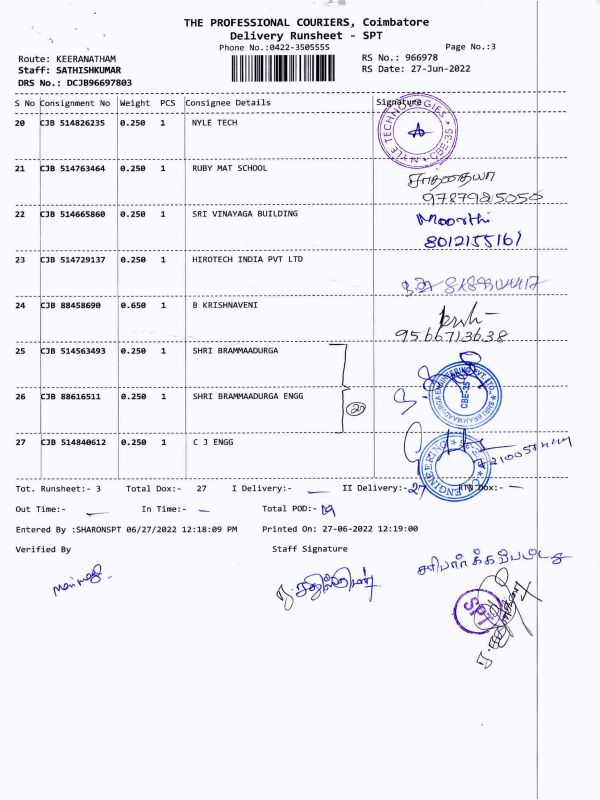 THE PROFESSIONAL COURIERS, Coimbatore
Delivery Runsheet - SPT
Phone No.:0422-3505555
Page No.:3
Route: KEERANATHAM
RS No.: 966978
Staff: SATHISHKUMAR
RS Date: 27-Jun-2022
DRS No.: DCJB96697803
S No Consignment No Weight PCS Consignee Details Signature
20 CJB 514826235 0.250 1 NYLE TECH
NYLE TECHNOLOGIES * CBE-35 *
21 CJB 514763464 0.250 1 RUBY MAT SCHOOL
9787925050
22 CJB 514665860 0.250 1 SRI VINAYAGA BUILDING Moorthi
8012155161
23 CJB 514729137 0.250 1 HIROTECH INDIA PVT LTD
24 CJB 88458690 0.650 1 B KRISHNAVENI
9566713638
25 CJB 514563493 0.250 1 SHRI BRAMMAADURGA
26 CJB 88616511 0.250 1 SHRI BRAMMAADURGA ENGG
SHRI BRAMMAADURGA ENGINEERING PVT. LTD. CBE-35
27 CJB 514840612 0.250 1 C J ENGG
ENGINEERING
Tot. Runsheet:- 3 Total Dox:- 27 I Delivery:- — II Delivery:- 27 RTN Dox:- —
Out Time:- — In Time:- — Total POD:-
Entered By :SHARONSPT 06/27/2022 12:18:09 PM Printed On: 27-06-2022 12:19:00
Verified By Staff Signature
SPT